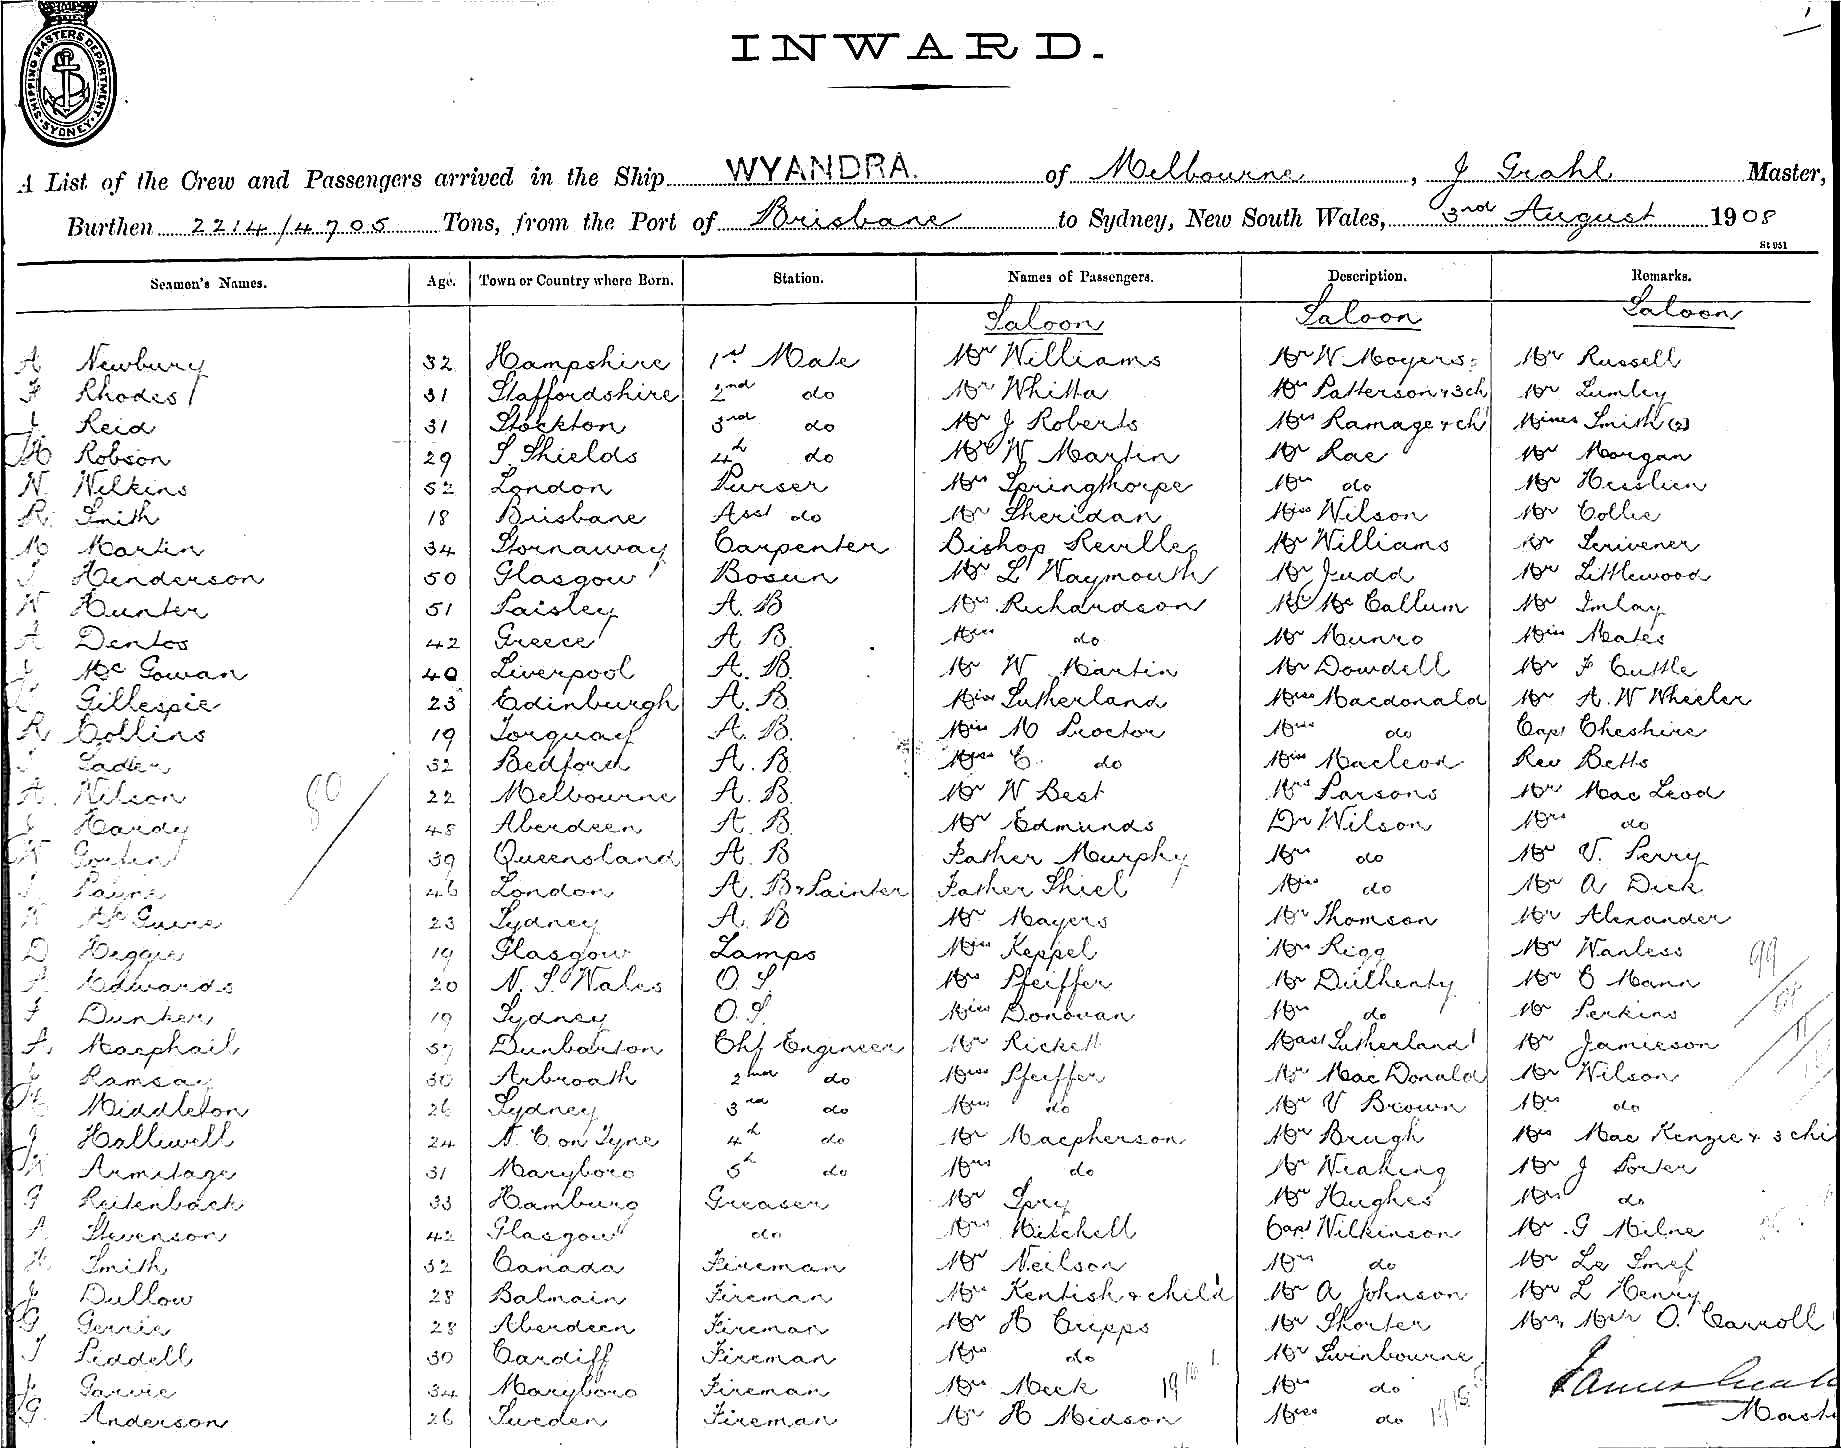 SHIPPING MASTERS DEPARTMENT. SYDNEY.
INWARD.
A List of the Crew and Passengers arrived in the Ship WYANDRA. of Melbourne, J Grahl Master,
Burthen 2214/4705 Tons, from the Port of Brisbane to Sydney, New South Wales, 3rd August 1908
St 951
Seamen's Names. Age. Town or Country where Born. Station. Names of Passengers. Description. Remarks.
Saloon Saloon Saloon
A Newbury 32 Hampshire 1st Mate Mr Williams Mr W Moyers Mr Russell
F Rhodes 31 Staffordshire 2nd do Mr Whitta Mrs Patterson & 3ch Mr Lumley
Reid 31 Stockton 3rd do Mr J Roberts Mrs Ramage & ch Misses Smith (2)
H Robson 29 S Shields 4th do Mr W Martin Mr Rae Mr Morgan
N Wilkins 52 London Purser Mrs Springthorpe Mrs do Mr Hesslien
R Smith 18 Brisbane Asst do Mr Sheridan Miss Wilson Mr Collie
M Martin 34 Stornaway Carpenter Bishop Reville Mr Williams Mr Scrivener
Henderson 50 Glasgow Bosun Mr L Waymouth Mr Judd Mr Littlewood
W Hunter 51 Paisley A. B Mrs Richardson Mr Mc Callum Mr Imlay
A Dentos 42 Greece A. B. Miss do Mr Munro Miss Mates
Mc Gowan 40 Liverpool A. B. Mr W Martin Mr Dowdell Mr F Cuttle
Gillespie 23 Edinburgh A. B. Miss Sutherland Miss Macdonald Mr A. W Wheeler
R Collins 19 Torquay A. B. Miss M Proctor Miss do Capt Cheshire
Sadler 32 Bedford A. B. Miss C. do Miss Macleod Rev Betts
A. Wilson 22 Melbourne A. B. Mr W Best Mrs Parsons Mr Mac Leod
Hardy 48 Aberdeen A. B. Mr Edmunds Dr Wilson Mrs do
39 Queensland A. B Father Murphy Mrs do Mr V. Perry
Payne 46 London A. B & Painter Father Shiel Miss do Mr A Dick
Mc Guire 23 Sydney A. B Mr Mayers Mr Thomson Mr Alexander
D Heggie 19 Glasgow Lamps Miss Keppel Mrs Rigg Mr Wanless
Edwards 20 N. S. Wales O. S. Mrs Pfeiffer Mr Dulhenty Mr C Mann
F Dunker 19 Sydney O. S. Miss Donovan Mrs do Mr Perkins
A. Macphail 57 Dunbarton Chf Engineer Mr Rickett Mast Sutherland Mr Jamieson
Ramsay 30 Arbroath 2nd do Miss Pfeiffer Mr Mac Donald Mr Wilson
Middleton 26 Sydney 3rd do Miss do Mr V Brown Mrs do
J Halliwell 24 N. C. on Tyne 4th do Mr Macpherson Mr Brugh Mrs Mac Kenzie & 3 chi
Armitage 31 Maryboro 5th do Mrs do Mr Weaking Mr J Porter
G Reitenbach 33 Hamburg Greaser Mr Spry Mr Hughes Mrs do
A Stevenson 42 Glasgow do Mrs Mitchell Capt Wilkinson Mr G Milne
H Smith 32 Canada Fireman Mr Neilson Mrs do Mr Le Smef
J Dullow 28 Balmain Fireman Mrs Kentish & child Mr A Johnson Mr L Henry
G Gerrie 28 Aberdeen Fireman Mr H Cripps Mr Shorter Mr & Mrs O. Carroll
T Liddell 30 Cardiff Fireman Mrs do Mr Swinbourne
Garvie 34 Maryboro Fireman Mrs Meek Mrs do
G. Anderson 26 Sweden Fireman Mr H Midson Miss do
80
99
James Grahl
Maste